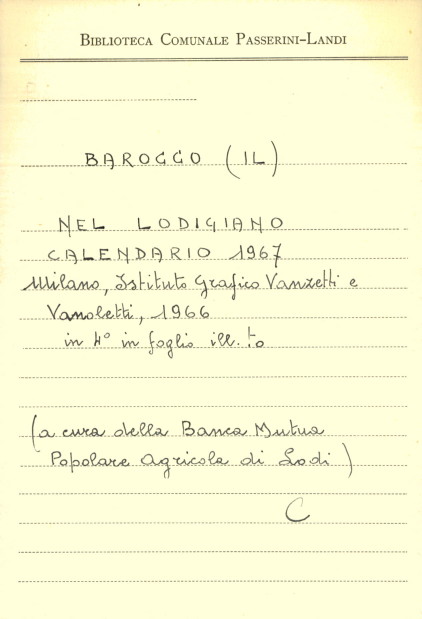 BIBLIOTECA COMUNALE PASSERINI-LANDI
BAROCCO (IL)
NEL LODIGIANO
CALENDARIO 1967
Milano, Istituto Grafico Vanzetti e
Vanoletti, 1966
in 4° in foglio ill.to
(a cura della Banca Mutua
Popolare Agricola di Lodi)
C